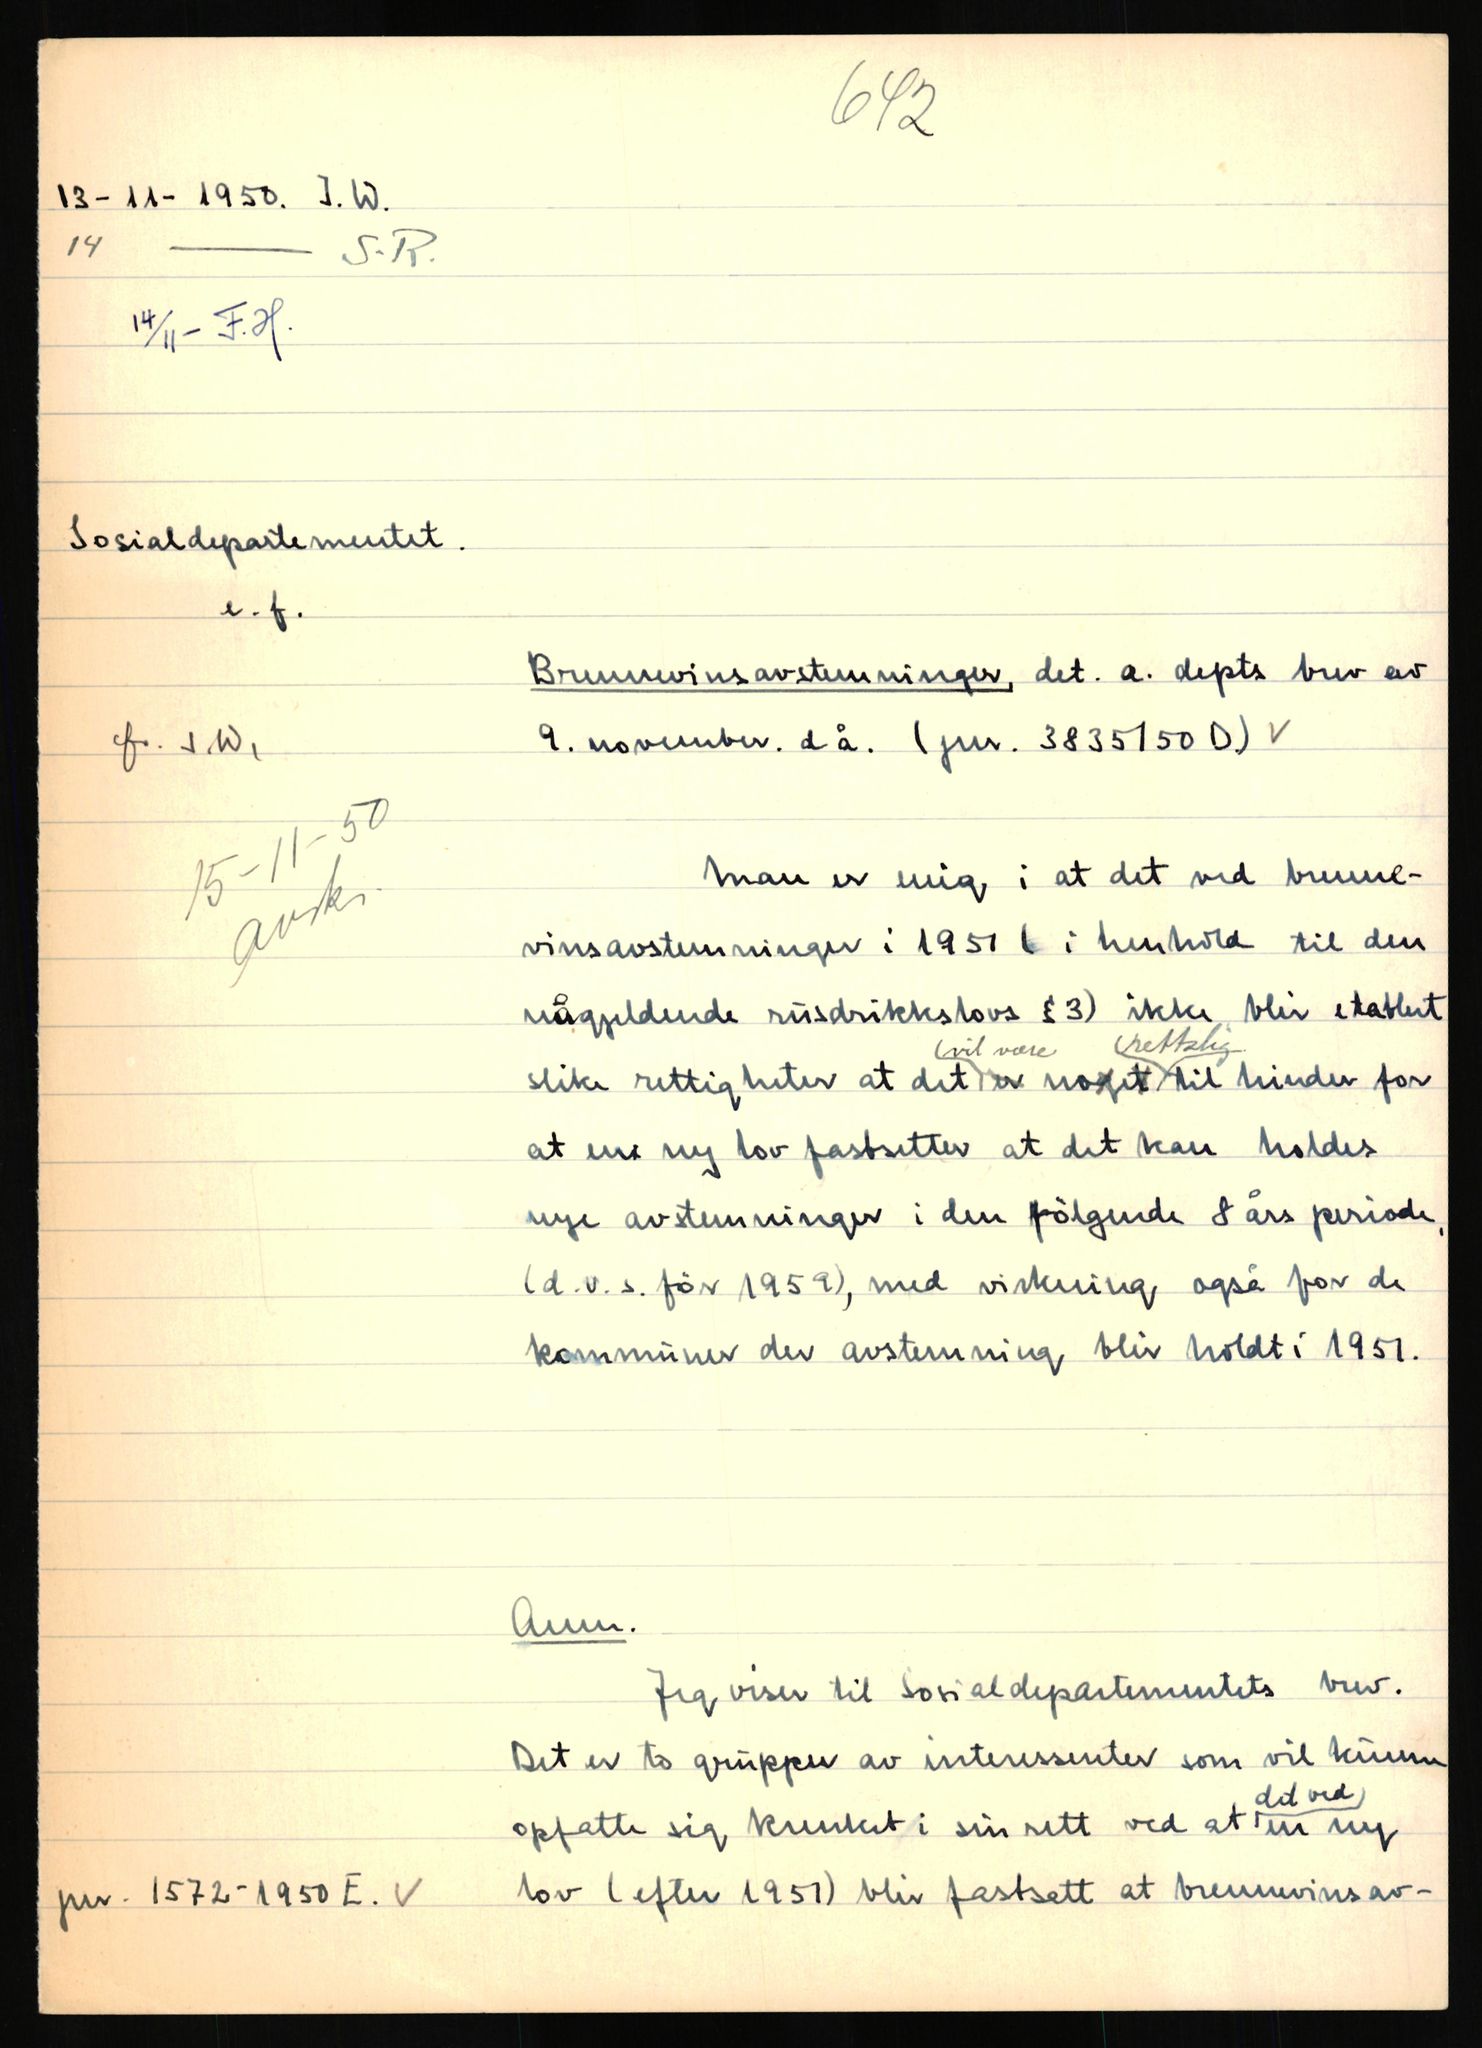 642
13-11-1950. I.W.
14 —— S.R.
14/11- F.H.
Sosialdepartementet.
e.f.
Brennevinsavstemninger, det. a. depts brev av
9. november. d å. (jnr. 3835/50 D) V
I.W.
15-11-50
avskr.
Man er enig i at det ved brenne-
vinsavstemninger i 1951 ( i henhold til den
någjeldende rusdrikkslovs § 3) ikke blir etablert
(vil være (rettslig
slike rettigheter at det er noget til hinder for
at en ny lov fastsetter at det kan holdes
nye avstemninger i den følgende 8 års periode,
(d.v.s. før 1959), med virkning også for de
kommuner der avstemning blir holdt i 1951.
Anm.
Jeg viser til Sosialdepartementets brev.
Det er to grupper av interessenter som vil kunne
det ved
opfatte sig krenket i sin rett ved at en ny
jnr. 1572-1950 E. V
lov (efter 1951) blir fastsatt at brennevinsav-